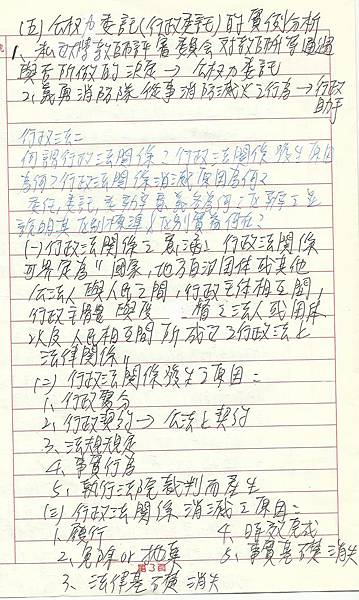 (五) 公權力委託(行政委託)的實例分析
1. 私立大學教師評審委員會對教師升等通過
與否所做的決定→公權力委託
2. 義勇消防隊從事消防滅火之行為→行政
助手
行政法=
何謂行政法關係?行政法關係發生原因
為何?行政法關係消滅原因為何?
委任、委託、
說明其區別標準&區別實益何在?
(一) 行政法關係之意涵: 行政法關係
可界定為"國家,地方自治團體或其他
公法人與人民之間,行政主體相互間,
行政主體與 之法人或團體
以及人民相互間所成立之行政法上
法律關係"
(二) 行政法關係發生之原因=
1、行政處分
2、行政契約→公法上契約
3、法規規定
4、事實行為
5、執行法院裁判而產生
(三) 行政法關係消滅之原因=
1、履行 4、時效完成
2、免除or拋棄 5、事實基礎消失
3、法律基礎消失
第3頁